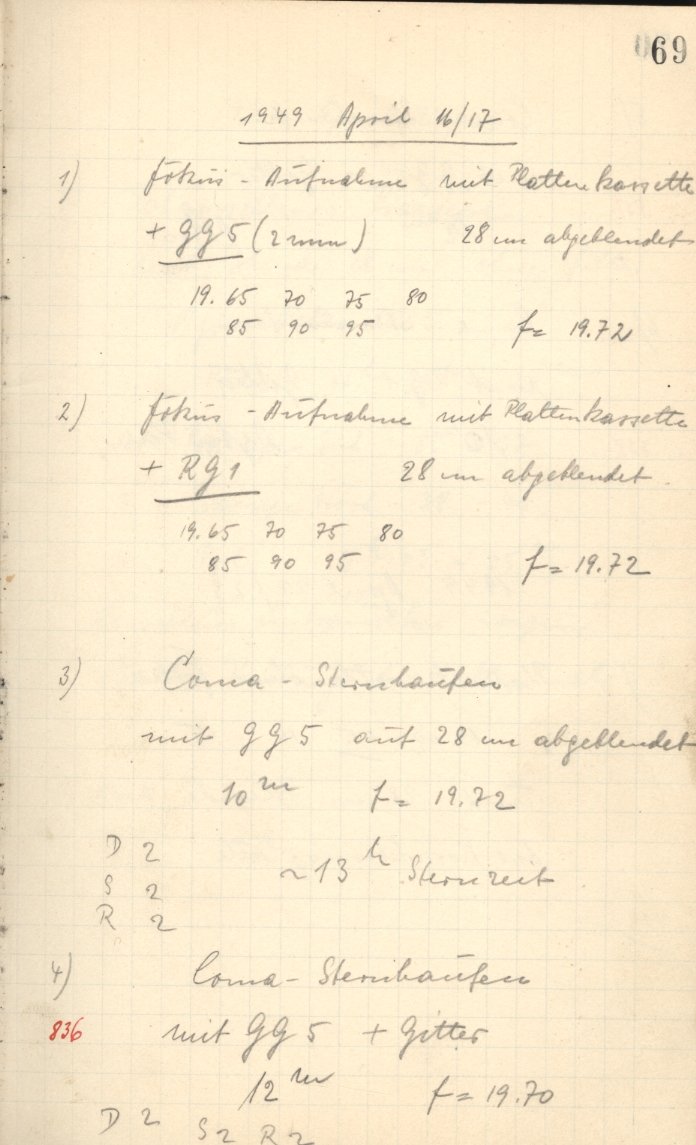 69
1949 April 16/17
1) Fokus - Aufnahme mit Plattenkassette
+ GG5 (2mm) 28 cm abgeblendet
19.65 70 75 80
85 90 95 f= 19.72
2) Fokus - Aufnahme mit Plattenkassette
+ RG1 28 cm abgeblendet
19.65 70 75 80
85 90 95 f= 19.72
3) Coma - Sternhaufen
mit GG5 auf 28 cm abgeblendet
10 m f= 19.72
D 2
~13 h Sternzeit
S 2
R 2
4) Coma - Sternhaufen
836 mit GG5 + Gitter
12 m f= 19.70
D 2 S2 R2